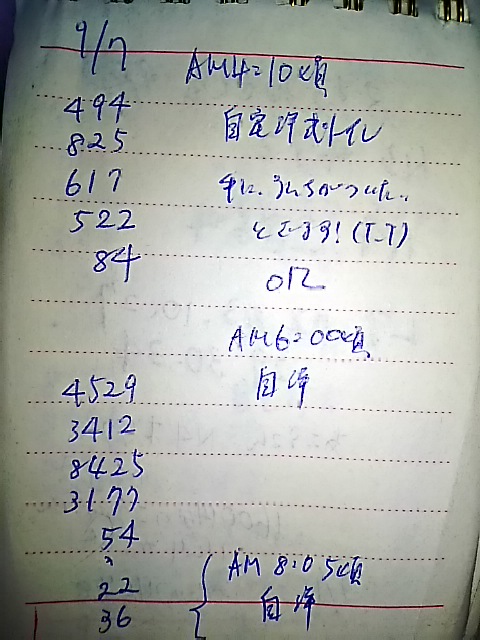 9/7
AM4=10頃
494
825
自宅洋式トイレ
617
手に、うんちがついた。
522
とでます!(T_T)
84
AM6=00頃
自
4529
3412
8425
3177
54
22
AM 8:05頃
36
自